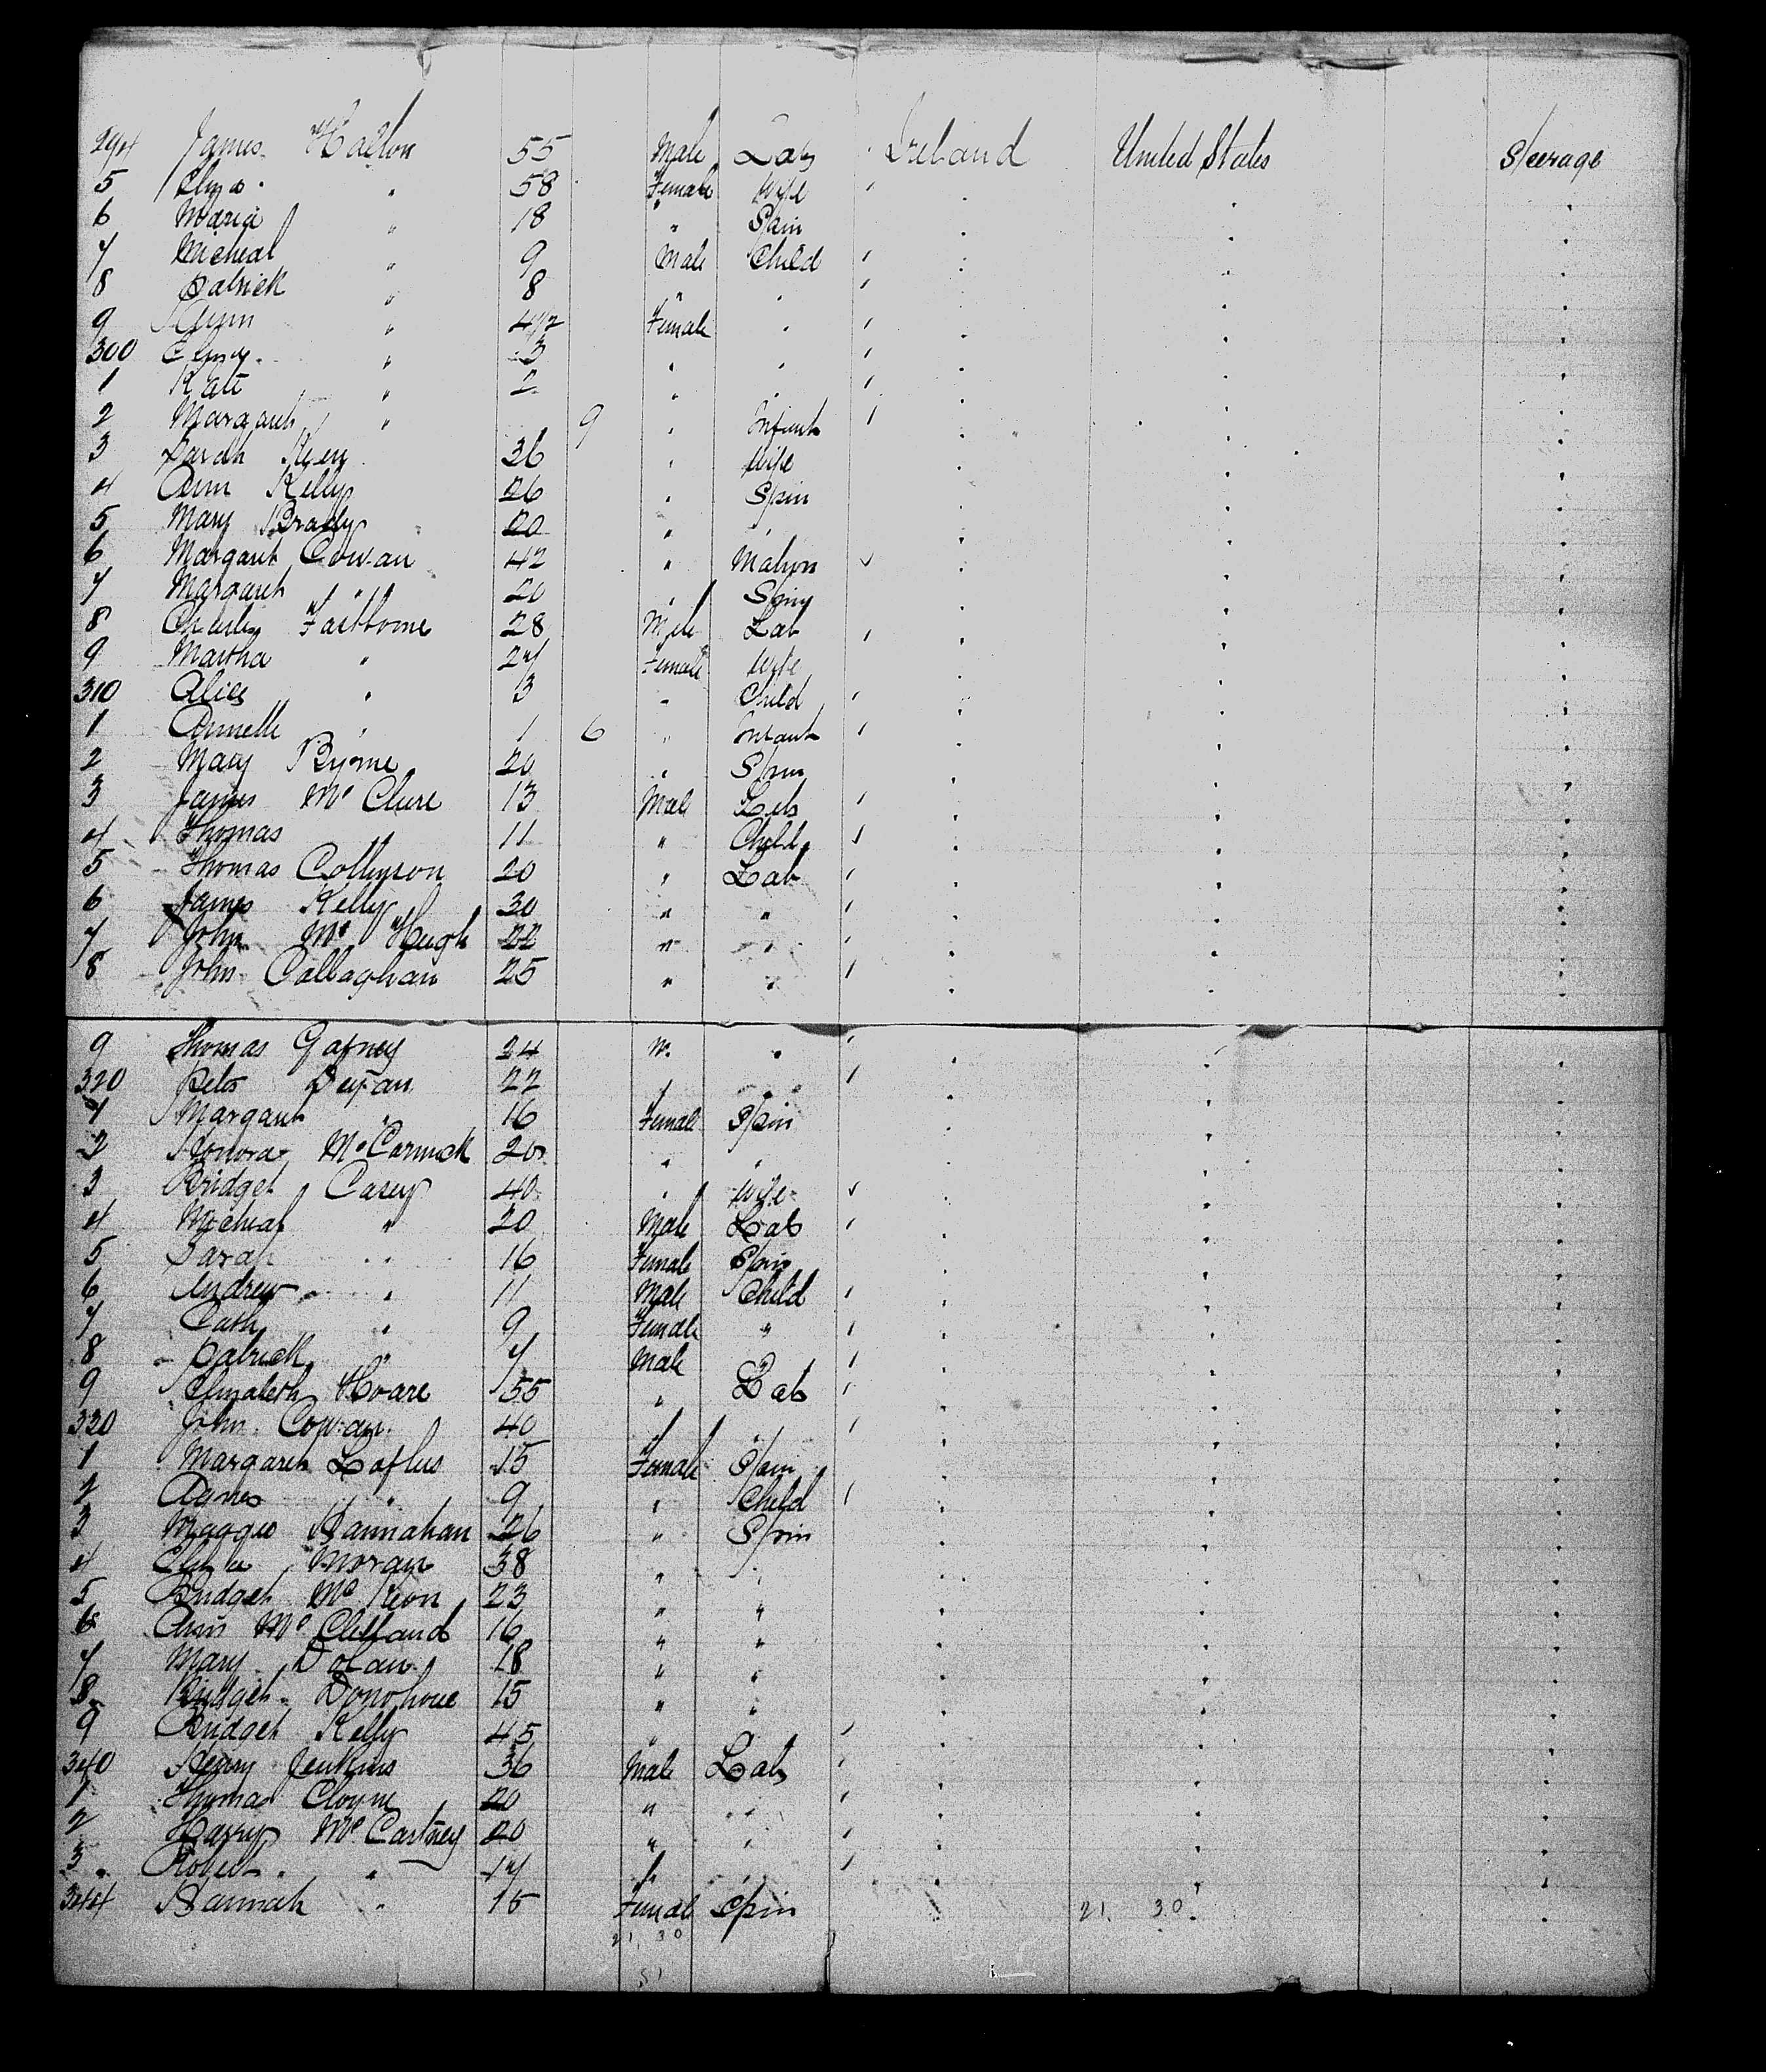 294 James Hallon 55 Male Lab Ireland United States Steerage
5 Eliza " 58 Female Wife
6 Maria " 18 " Spin
7 Micheal " 9 Male Child
8 Patrick " 8 " "
9 " 4 1/2 Female "
300 Eliza " 3 " "
1 Kate " 2 " "
2 Margaret " 9 " Infant
3 Sarah 36 " Wife
4 Ann Kelly 26 " Spin
5 Mary Brady 20 " "
6 Margaret Cowan 42 " Matron
7 Margaret " 20 " Spin
8 Charles 28 Male Lab
9 Martha " 27 Female Wife
310 Alice " 3 " Child
1 " 1 6 " Infant
2 Mary Byrne 20 " Spin
3 James Mc Clure 13 Male Lab
4 Thomas 11 " Child
5 Thomas 20 " Lab
6 James Kelly 30 " "
7 John Mc Hugh 22 " "
8 John Callaghan 25 " "
9 Thomas Gafney 24 M. "
320 Peter 22 " "
1 Margaret " 16 Female Spin
2 Honora McCormick 20 " "
3 Bridget Casey 40 " Wife
4 Micheal " 20 Male Lab
5 Sarah " 16 Female Spin
6 Andrew " 11 Male Child
7 Cath " 9 Female "
8 Patrick " 7 Male "
9 Elizabeth Hoare 55 " Lab
330 John Cowan 40 " "
1 Margaret Loftus 15 Female Spin
2 Agnes " 9 " Child
3 Maggie Hannahan 26 " Spin
4 Moran 38 " "
5 Bridget Mc Keon 23 " "
6 Ann Mc Clelland 16 " "
7 Mary Dolan 18 " "
8 Bridget Donohoue 15 " "
9 Bridget Kelly 45 "
340 Henry Jenkins 36 Male Lab
1 Thomas Cloyne 20 " "
2 Harry Mc Cartney 20 " "
3 Robert " 17 " "
344 Hannah " 15 Female Spin 21. 30
21. 30
51